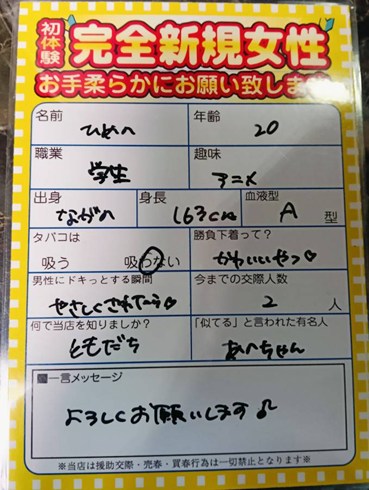 初体験 完全新規女性
お手柔らかにお願い致します
名前 年齢
20
職業 趣味
学生 アニメ
出身 身長 血液型
ながの 163cm A 型
タバコは 勝負下着って?
吸う 吸わない かわいいやつ♡
男性にドキっとする瞬間 今までの交際人数
やさしくされたとき♡ 2 人
何で当店を知りましたか? 「似てる」と言われた有名人
ともだち
■一言メッセージ
よろしくお願いします♪
※当店は援助交際・売春・買春行為は一切禁止となります※